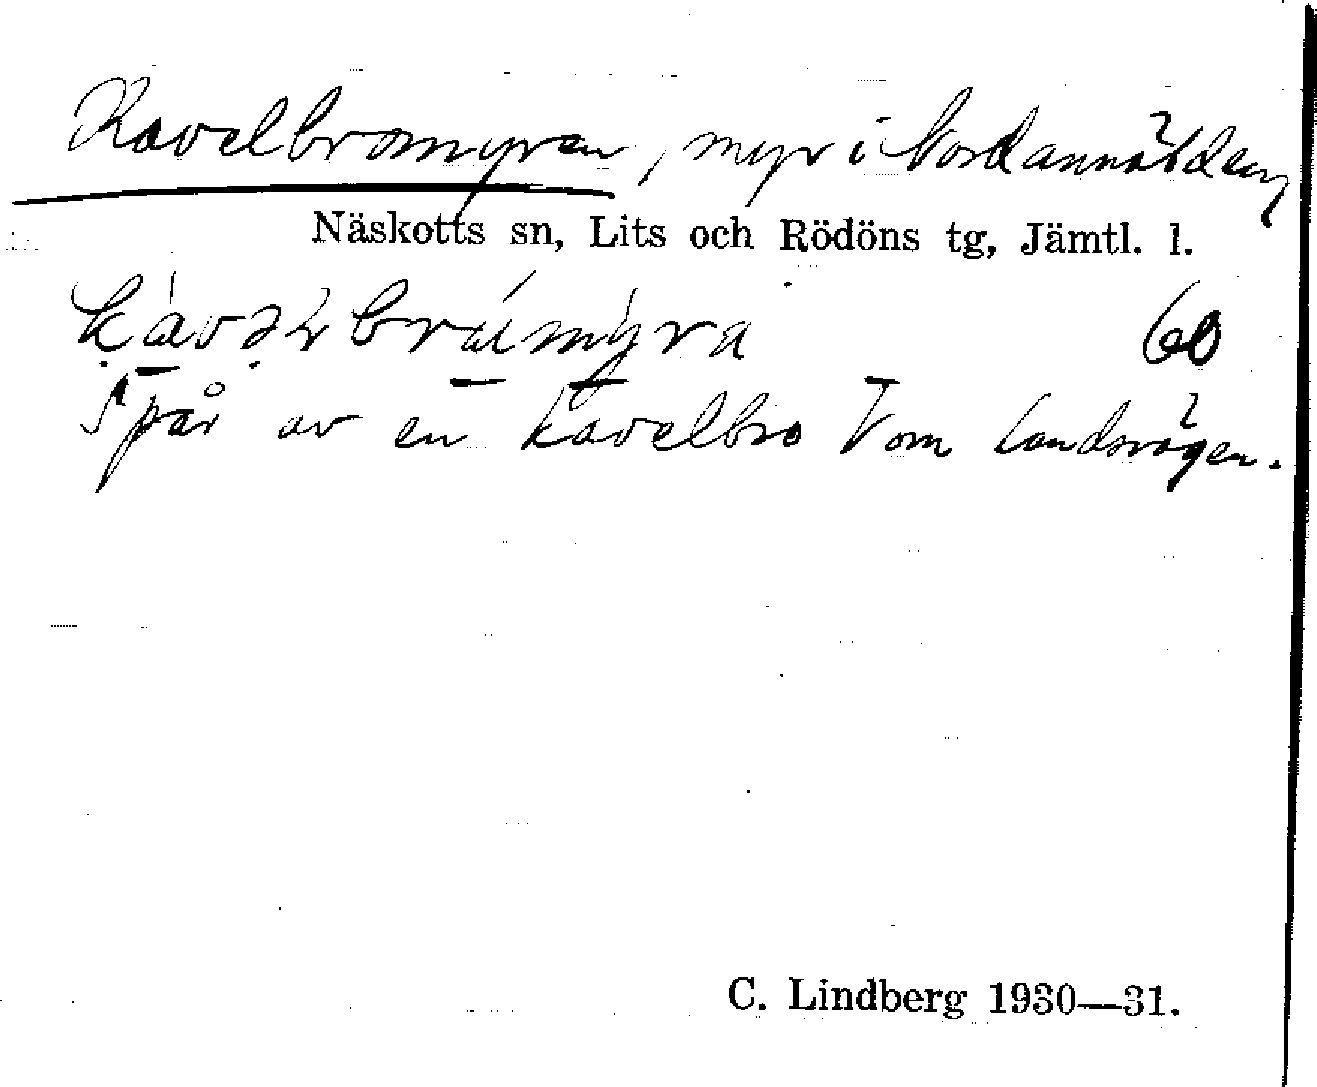 Kavelbromyren, myr i Nordannälden,
Näskotts sn, Lits och Rödöns tg, Jämtl. l.
60
Spår av en kavelbro V om landsvägen.
C. Lindberg 1930—31.